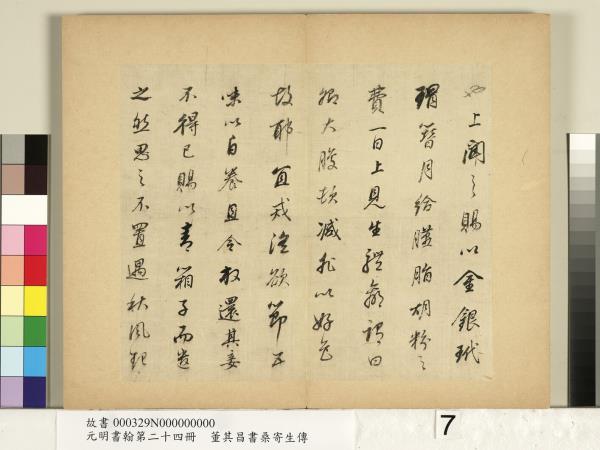 上聞之賜以金銀玳
瑁簪月給臙脂胡粉之
費一日上見生體羸謂曰
卿大腹頓減非以好色
故耶宜戒淫欲節五
味以自養且令放還其妾
不得已賜以青箱子而遣
之然思之不置遇秋風起
故書 000329N000000000
元明書翰第二十四冊　董其昌書桑寄生傳
7